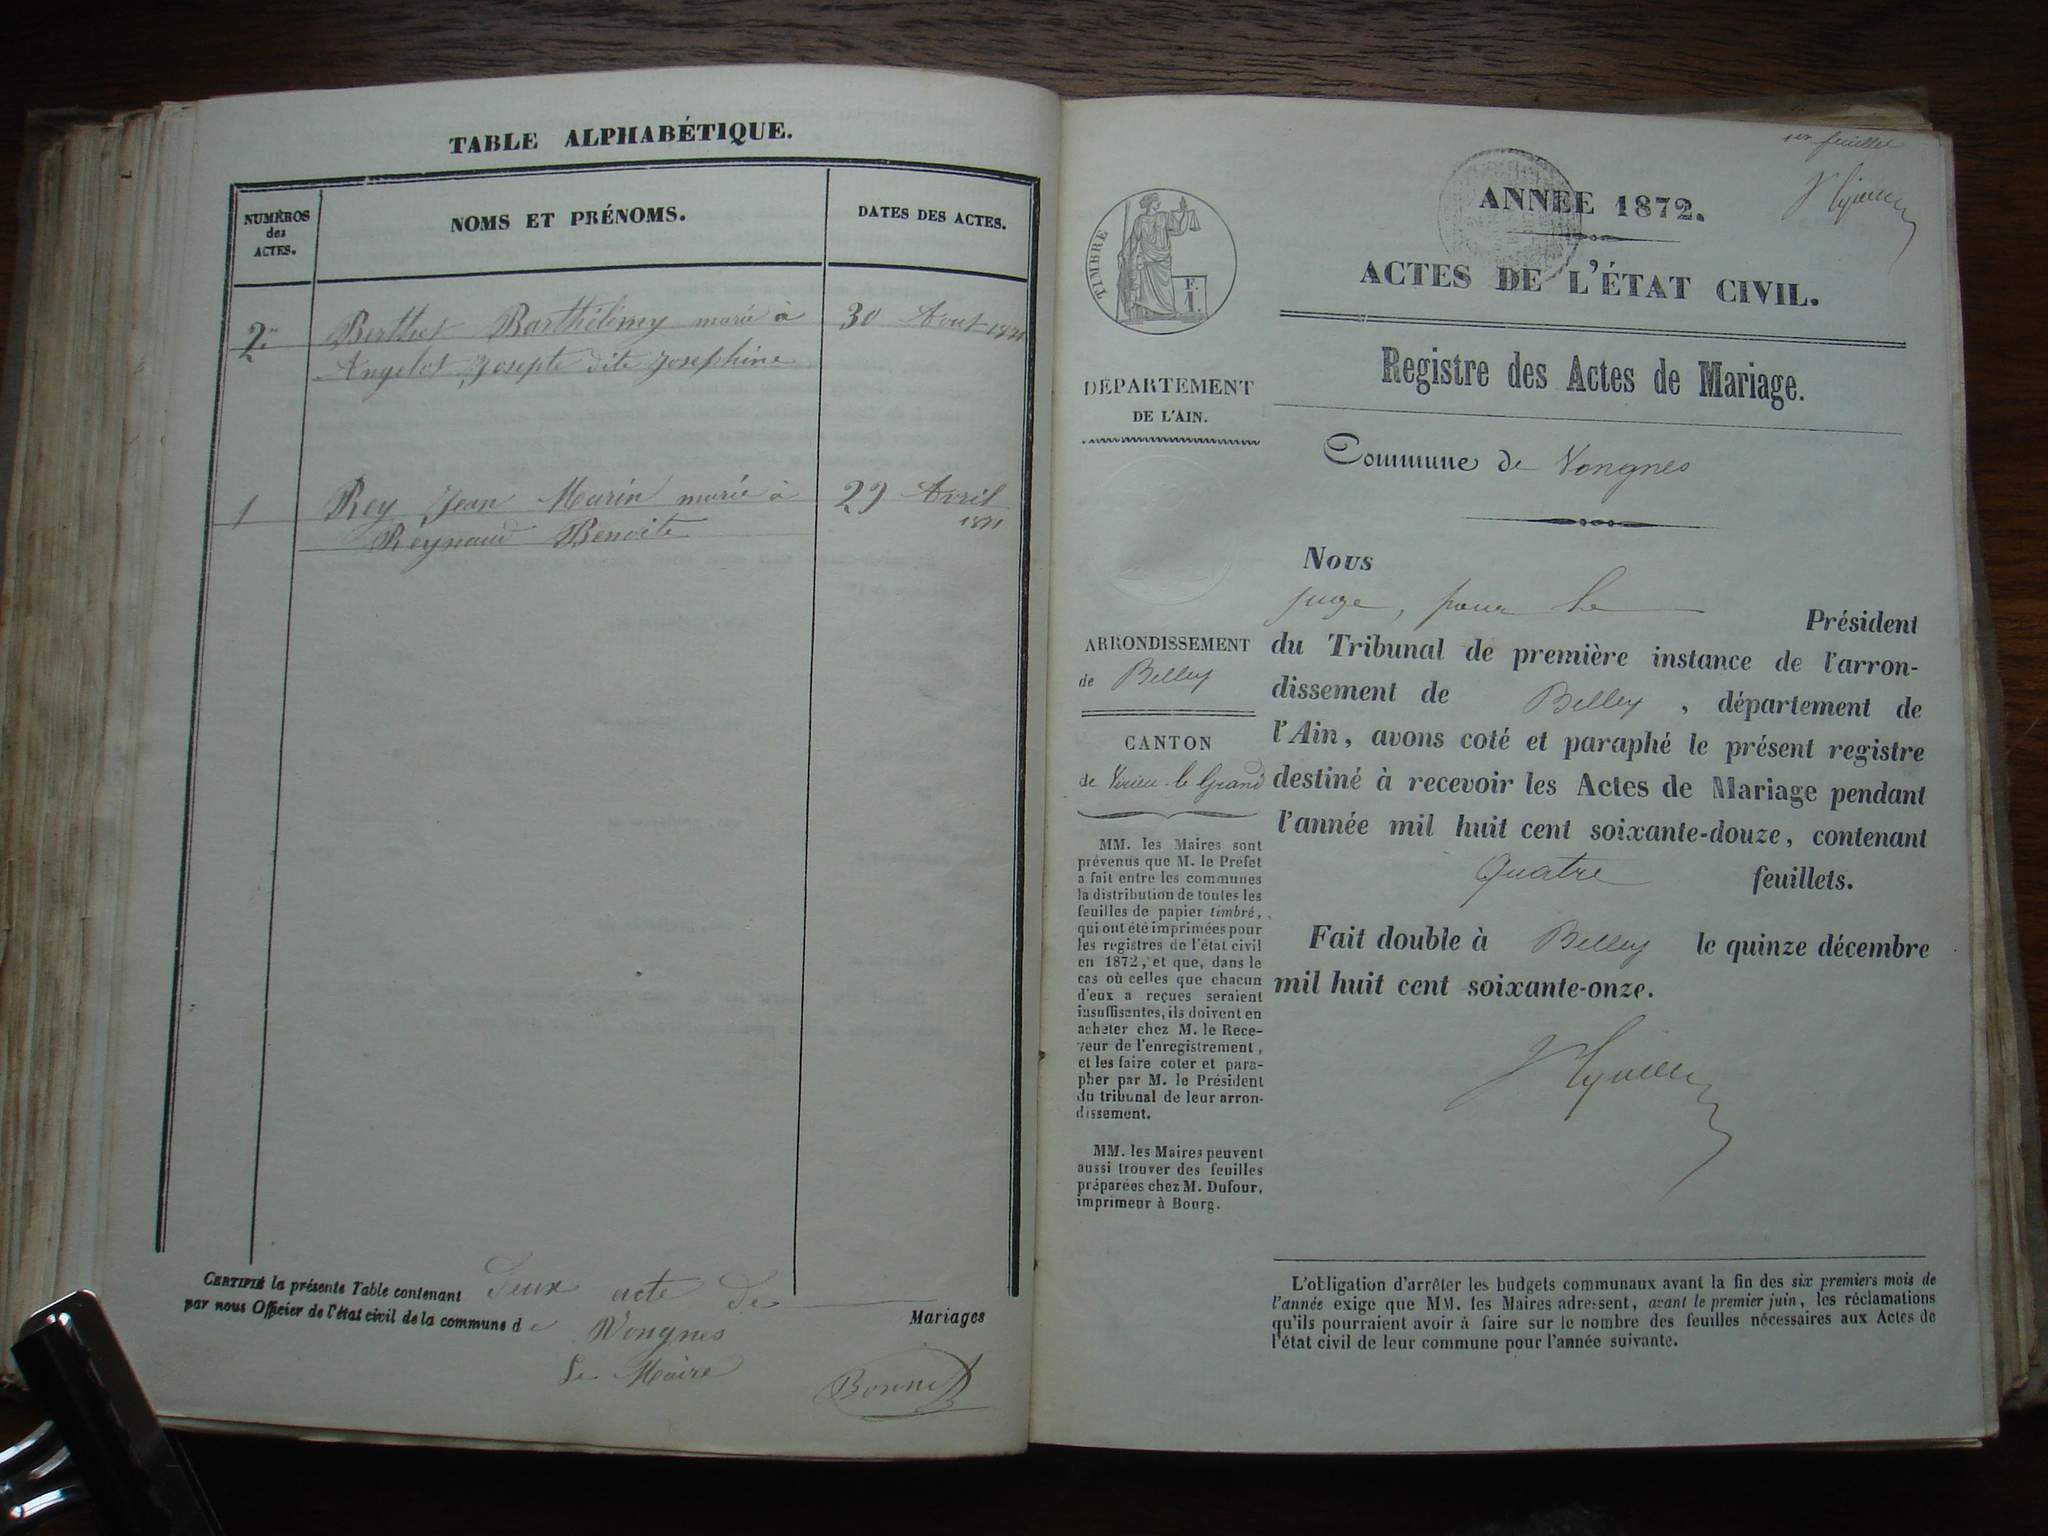 TABLE ALPHABÉTIQUE.
NUMÉROS
des
ACTES.
NOMS ET PRÉNOMS.
DATES DES ACTES.
2 Berthet Barthélemy marié à 30 Aout 1871
Angelot Josepte dite Josephine
1 Rey Jean Marin marié à 29 Avril
1871
Reynaud Benoite
CERTIFIÉ la présente Table contenant deux acte de
Mariages
par nous Officier de l'état civil de la commune de Vongnes
Le Maire
Bonnet
1er feuillet
TIMBRE
F.
1.
ANNÉE 1872.
ACTES DE L'ÉTAT CIVIL.
Registre des Actes de Mariage.
DÉPARTEMENT
DE L'AIN.
Commune de Vongnes
ARRONDISSEMENT
de Belley
CANTON
de Virieu-le-Grand
MM. les Maires sont
prévenus que M. le Préfet
a fait entre les communes
la distribution de toutes les
feuilles de papier timbré,
qui ont été imprimées pour
les registres de l'état civil
en 1872, et que, dans le
cas où celles que chacun
d'eux a reçues seraient
insuffisantes, ils doivent en
acheter chez M. le Rece-
veur de l'enregistrement,
et les faire coter et para-
pher par M. le Président
du tribunal de leur arron-
dissement.
MM. les Maires peuvent
aussi trouver des feuilles
préparées chez M. Dufour,
imprimeur à Bourg.
Nous
juge, pour le Président
du Tribunal de première instance de l'arron-
dissement de Belley, département de
l'Ain, avons coté et paraphé le présent registre
destiné à recevoir les Actes de Mariage pendant
l'année mil huit cent soixante-douze, contenant
Quatre feuillets.
Fait double à Belley le quinze décembre
mil huit cent soixante-onze.
L'obligation d'arrêter les budgets communaux avant la fin des six premiers mois de
l'année exige que MM. les Maires adressent, avant le premier juin, les réclamations
qu'ils pourraient avoir à faire sur le nombre des feuilles nécessaires aux Actes de
l'état civil de leur commune pour l'année suivante.